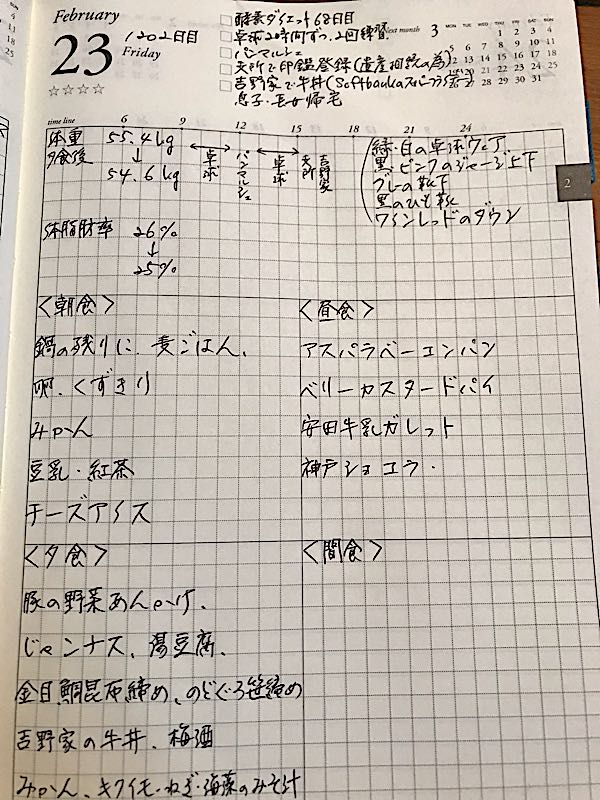 February
23
Friday
1202日目
☆☆☆☆
酵素ダイエット68日目
卓球2時間ずつ、2回練習
パンマルシェ
支所で印鑑登録(遺産相続の為)
吉野家で牛丼(Softbankスーパーフライデー)
息子・長女帰宅
Next month 3 MON TUE WED THU FRI SAT SUN
1 2 3 4
5 6 7 8 9 10 11
12 13 14 15 16 17 18
19 20 21 22 23 24 25
26 27 28 29 30 31
time line 6 9 12 15 18 21 24
体重 55.4kg
夕食後 ↓
54.6kg
体脂肪率 26%
↓
25%
卓球
パンマルシェ
卓球
支所
吉野家
緑・白の卓球ウェア
黒・ピンクのジャージ上下
グレーの靴下
黒のひも靴
ワインレッドのダウン
2
<朝食>
鍋の残りに、麦ごはん、
卵、くずきり
みかん
豆乳・紅茶
チーズアイス
<昼食>
アスパラベーコンパン
ベリーカスタードパイ
安田牛乳ガレット
神戸ショコラ.
<夕食>
豚の野菜あんかけ、
じゃンナス、湯豆腐、
金目鯛昆布締め、のどぐろ笹締め
吉野家の牛丼、梅酒
みかん、キクイモ・ねぎ・海藻のみそ汁
<間食>